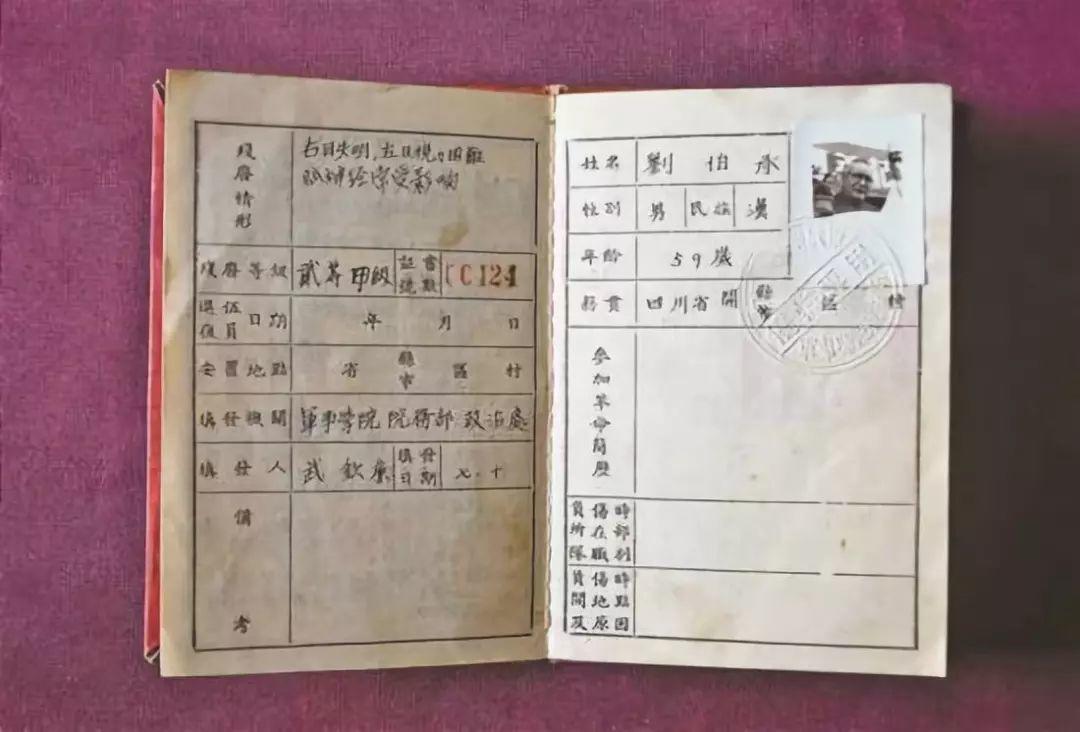 殘廢情形 右目失明,左目視力困難
腦神经常受影响
殘廢等級 貳等甲級 証書號數
退伍復員日期 年 月 日
安置地點 省 縣市 區 村
填發機關 軍事学院院務部政治處
填發人 武 填發日期 七.十
備考
姓名 劉伯承
性别 男 民族 漢
年齡 59歲
籍貫 四川省開縣市 區 村
參加革命簡歷
負傷時所在部隊職别
負傷時間地點及原因